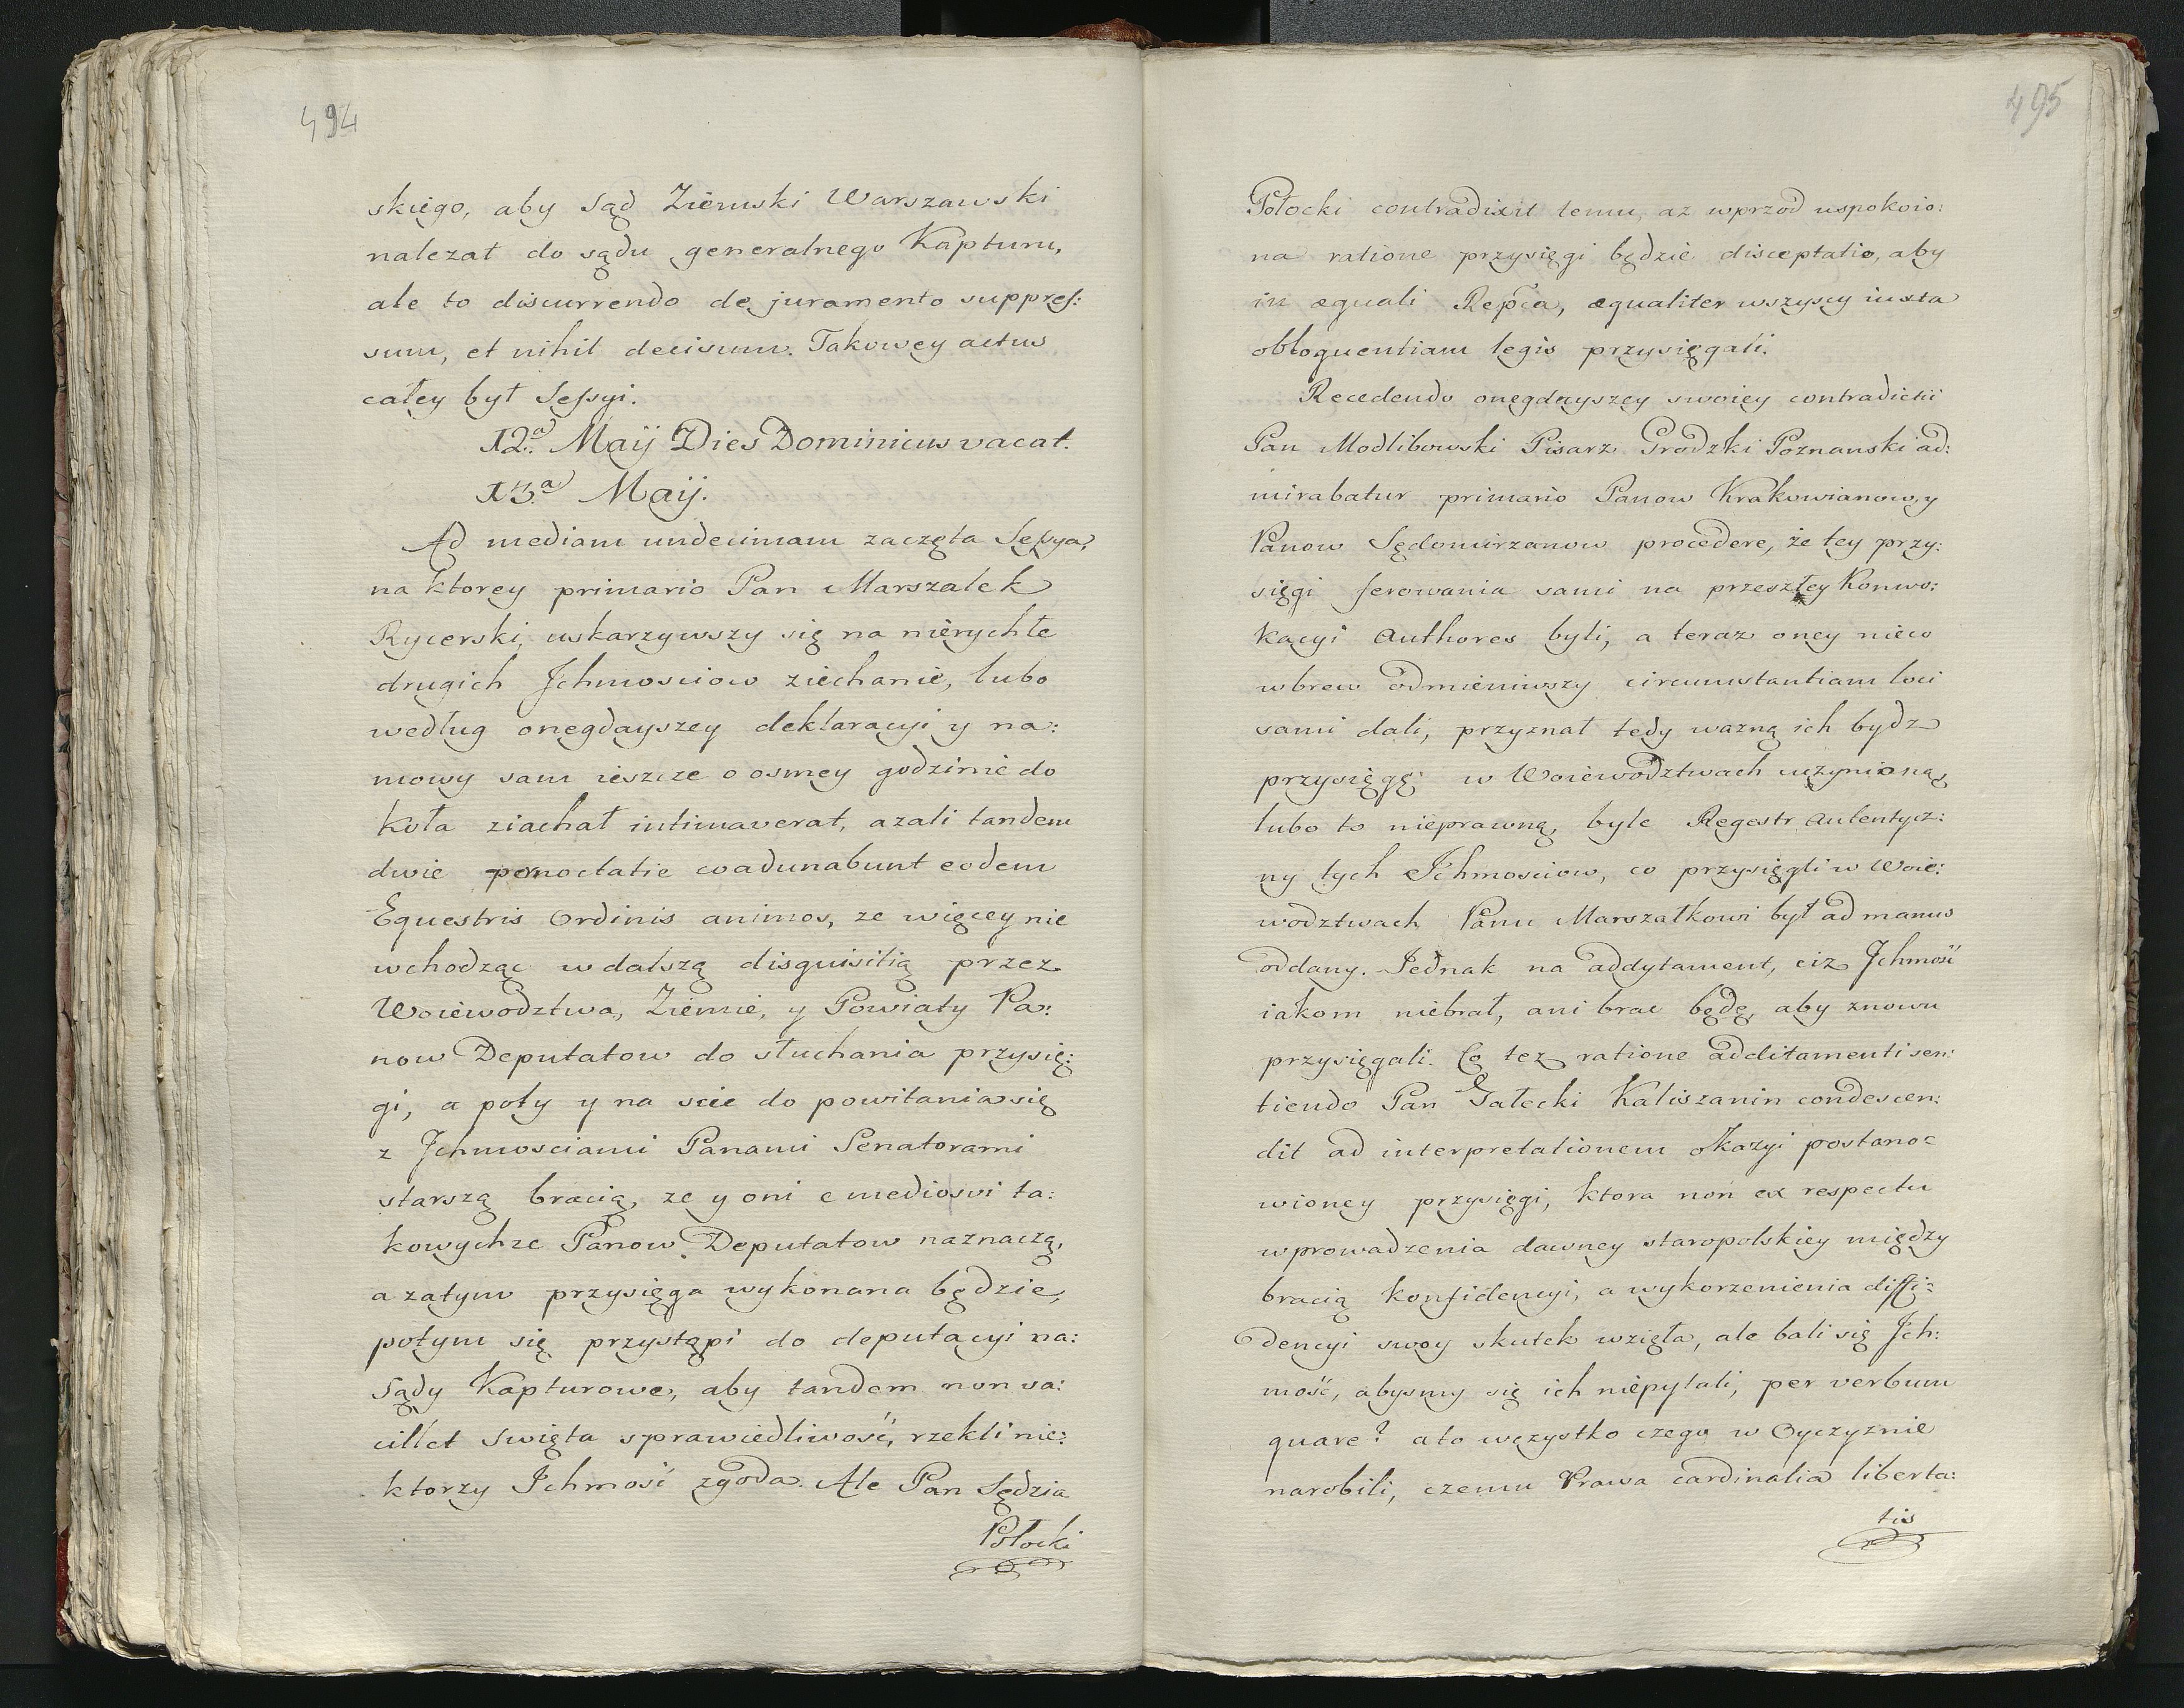 494
skięgo, aby Sąd Ziemski Warszawski
nalezał do sądu generalnego Kapturu,
ale to discurrendo de juramento suppres:
sum, et nihil decisum. Takowey actus
całey był Sessyi.
12.ª Maÿ Dies Dominicus vacat.
13.ª Maÿ.
Ad mediam undecimam zaczęta Sessya,
na ktorey primario Pan Marszałek
Rycerski, uskarzywszy się na nierychłe
drugich Jchmosciow ziechanie, lubo
według onegdayszey deklaracyi y na:
mowy sam ieszcze o osmey godzinie do
Koła ziachał intimaverat, azali tandem
dwie pernoctatie coadunabunt eodem
Equestris Ordinis animos, ze więcey nie
wchodząc w dalszą disquisitią przez
Woiewodztwa, Ziemie, y Powiaty Pa:
now Deputatow do słuchania przysię:
gi, a poty y na scie do powitania się
z Jchmosciami Panami Senatorami
starszą bracią, ze y oni e medio svi ta:
kowychze Panow Deputatow naznaczą,
a zatym przysięga wykonana będzie,
potym się przystąpi do deputacyi na:
Sądy Kapturowe, aby tandem non va:
cillet Swięta sprawiedliwość, rzekli nie:
ktorzy Jchmość zgoda. Ale Pan Sędzia
Połocki
495
Połocki contradixit temu, az wprzod uspokoio:
na ratione przysięgi będzie disceptatio, aby
in æquali Repca, æqualiter wszyscy iuxta
obloquentiam legis przysięgali.
Recedendo onegdayszey swoiey contradictii
Pan Modlibowski Pisarz Grodzki Poznanski ad:
mirabatur primario Panow Krakowianow, y
Panow Sędomirzanow procedere, że tey przy:
sięgi ferowania sami na przeszłey Konwo:
kacyi Authores byli, a teraz oney nieco
wbrew odmieniwszy circumstantiam loci
sami dali, przyznał tedy wazną ich bydz
przysięgę w Woiewodztwach uczynioną,
lubo to nieprawną, byle Regestr autentycz:
ny tych Jchmosciow, co przysięgli w Woie:
wodztwach Panu Marszałkowi był ad manus
oddany. Jednak na addytament, ciz Jchmość
iakom niebrał, ani brac będę, aby znowu
przysięgali. Co tez ratione additamenti sen:
tiendo Pan Gałecki Kaliszanin condescen:
dit ad interpretationem okazyi postano
wioney przysięgi, ktora non ex respectu
wprowadzenia dawney staropolskiey między
bracią konfidencyi, a wykorzenienia diffi:
dencyi swoy skutek wzięła, ale bali się Jch:
mość, abysmy się ich niepytali, per verbum
quare? a to wszystko czego w Oyczyznie
narobili, czemu Prawa cardinalia liberta:
tis